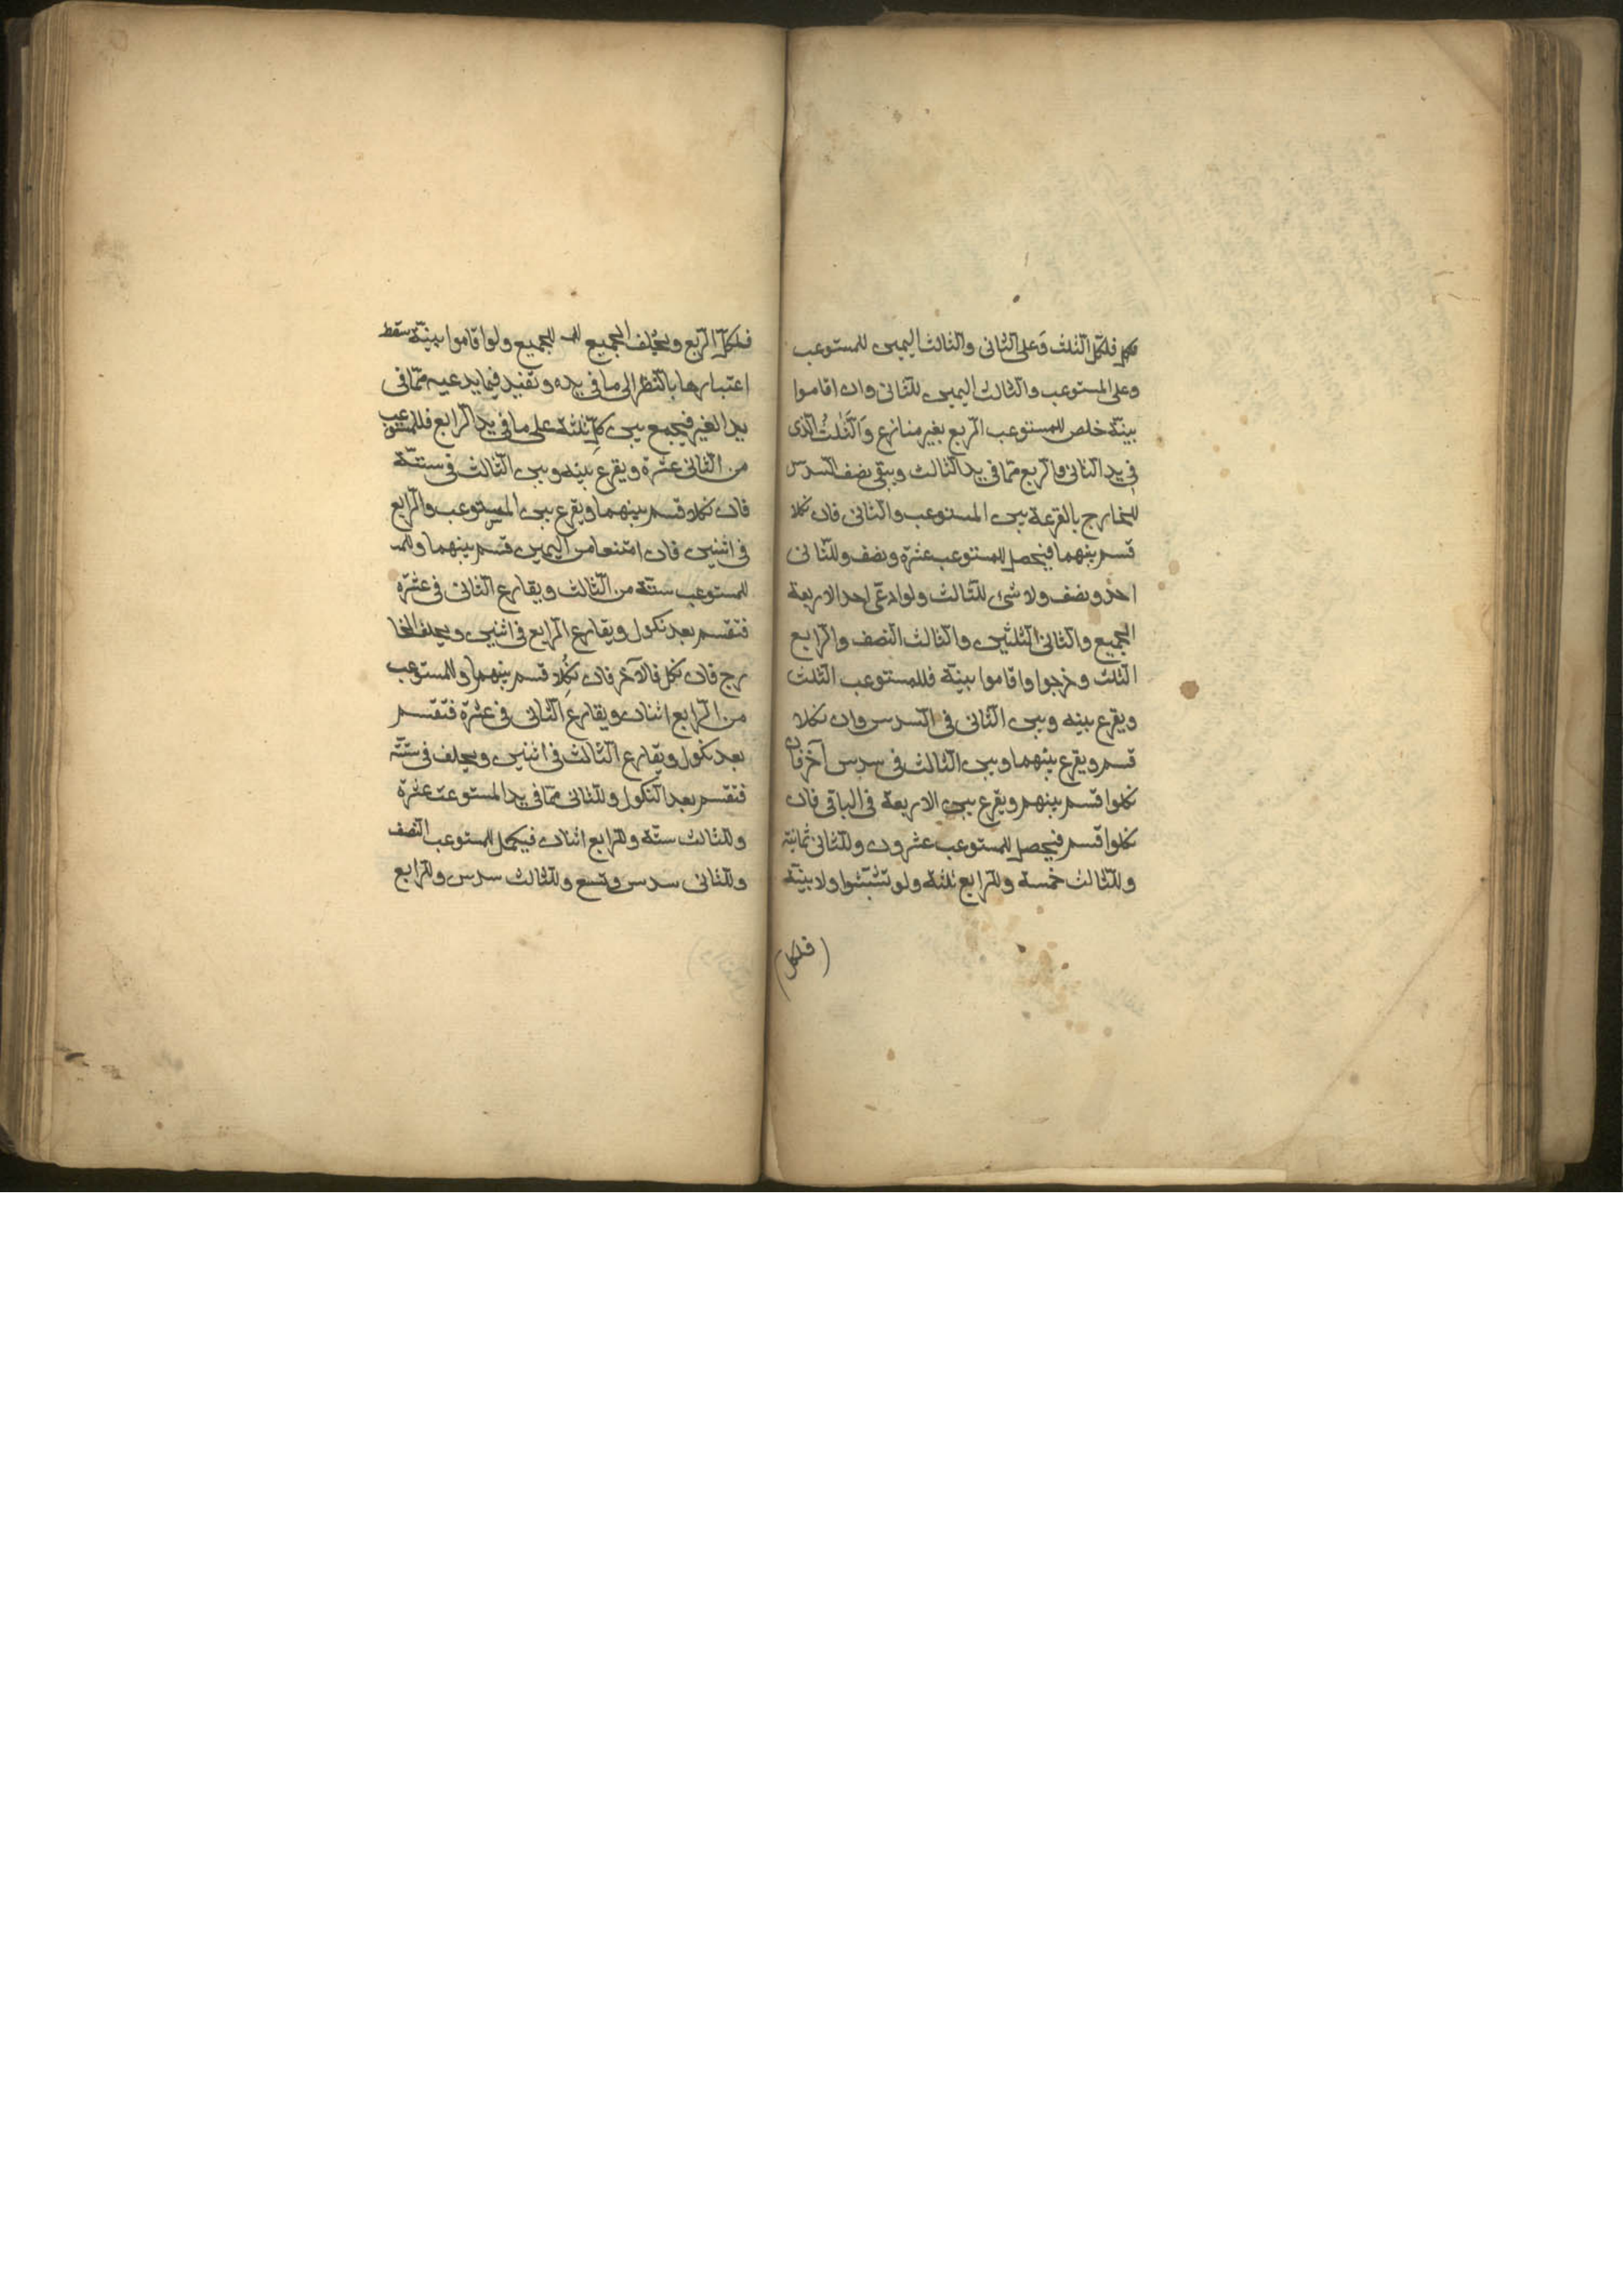 فلكل الثلث وعلى الثانى والثالث اليمين للمستوعب
وعلى المستوعب والثالث اليمين للثانى وان اقاموا
بينة خلص للمستوعب الربع بغير منازع والثلث الذى
فى يد الثانى والربع مما فى يد الثالث ويبقى نصف السدس
للخارج بالقرعة بين المستوعب والثانى فان نكلا
قسم بينهما فيحصل للمستوعب عشرة ونصف وللثانى
احد ونصف ولا شئ للثالث ولو ادعى احد الاربعة
الجميع والثانى الثلثين والثالث النصف والرابع
الثلث وخرجوا واقاموا بينة فللمستوعب الثلث
ويقرع بينه وبين الثانى فى السدس وان نكلا
قسم ويقرع بينهما وبين الثالث فى سدس آخر فان
نكلوا قسم بينهم ويقرع بين الاربعة فى الباقى فان
نكلوا قسم فيحصل للمستوعب عشرون وللثانى ثمانية
وللثالث خمسة وللرابع ثلثة ولو تشبثوا ولا بينة
(فلكل)
فلكل الربع ويحلف الجميع للجميع ولو اقاموا بينة سقط
اعتبارها بالنظر الى ما فى يده وتفيد فيما يدعيه مما فى
يد الغير فيجمع بين كل ثلثة على ما فى يد الرابع فللمستوعب
من الثانى عشرة ويقرع بينه وبين الثالث فى ستة
فان نكلا قسم بينهما ويقرع بين المستوعب والرابع
فى اثنين فان امتنعا من اليمين قسم بينهما وللمـ
للمستوعب ستة من الثالث ويقارع الثانى فى عشرة
فتقسم بعد نكول ويقارع الرابع فى اثنين ويحلف الخا
رج فان نكل فالآخر فان نكلا قسم بينهما وللمستوعب
من الرابع اثنان ويقارع الثانى فى عشرة فتقسم
بعد نكول ويقارع الثالث فى اثنين ويحلف فى ستة
فتقسم بعد النكول وللثانى مما فى يد المستوعب عشرة
وللثالث ستة وللرابع اثنان فيكمل للمستوعب النصف
وللثانى سدس وتسع وللثالث سدس وللرابع